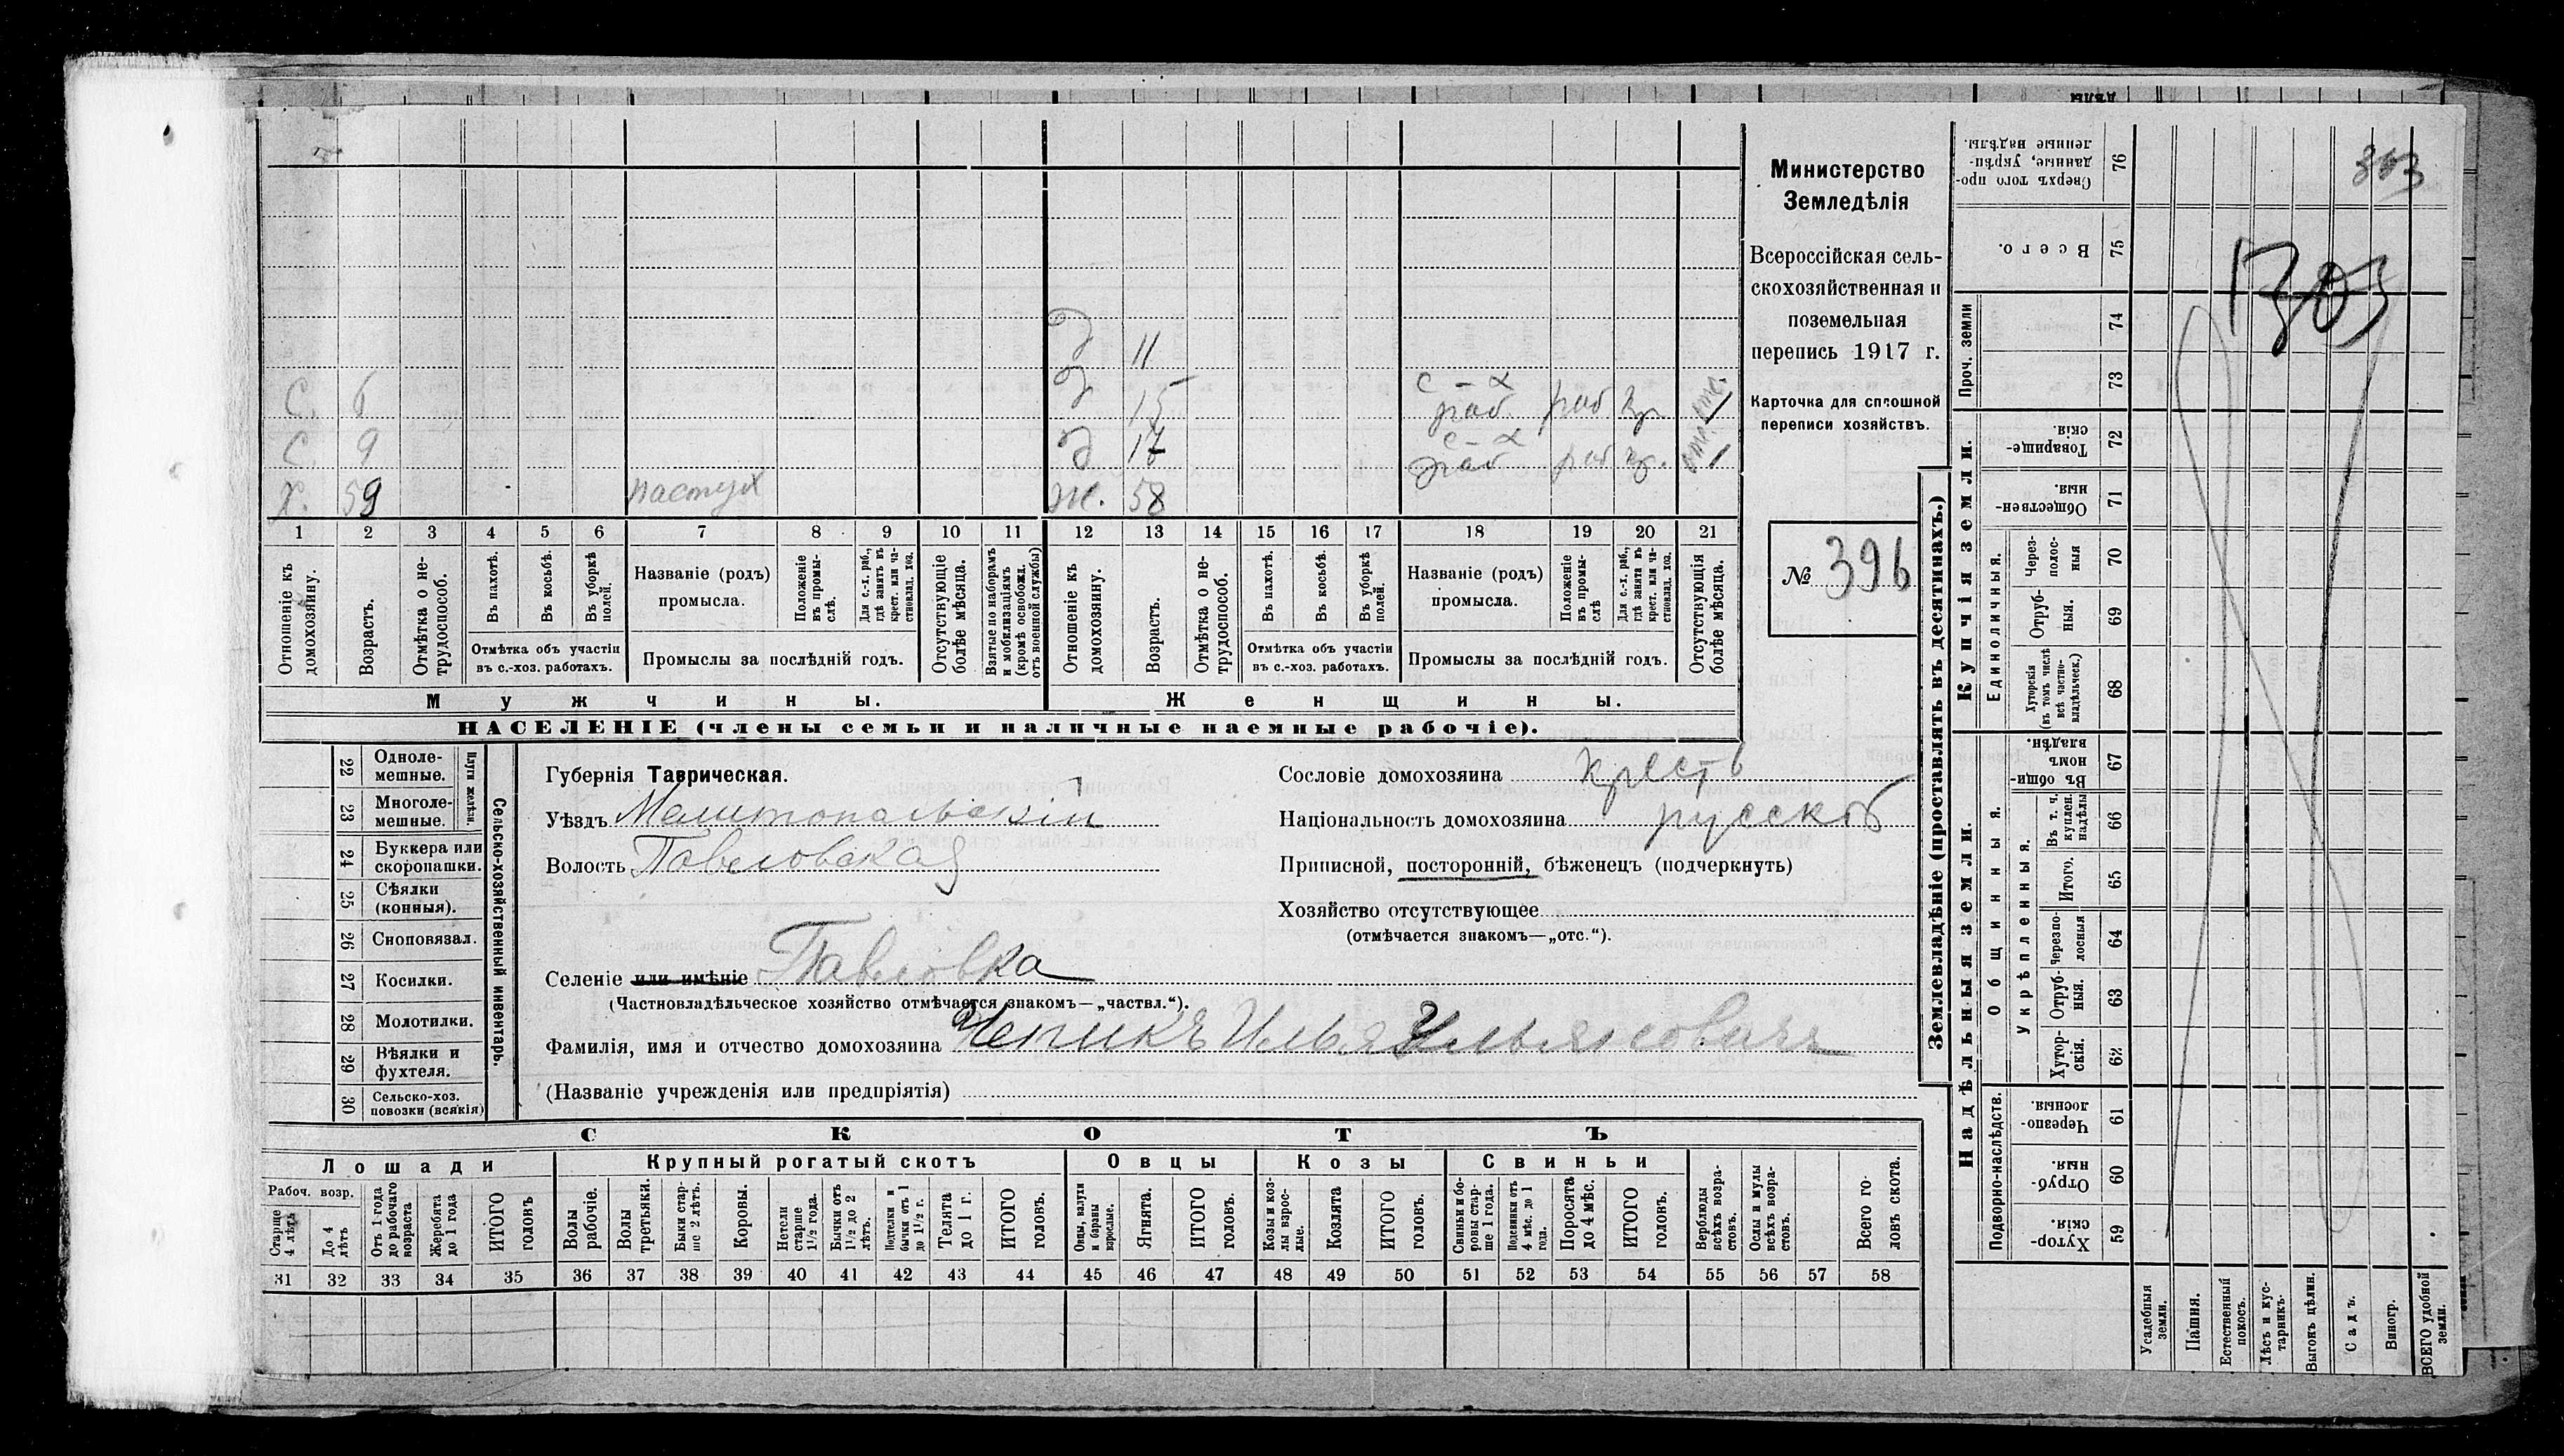 Министерство
Земледѣлія
Всероссійская сель-
скохозяйственная и
поземельная
перепись 1917 г.
Карточка для сплошной
переписи хозяйствъ.
№ 396
363
Д 11
С. 6 Д 15 с-х раб. раб кр отс.
С. 9 Д 17 с-х раб раб кр. отс.
Х. 59 пастух ж. 58
1 2 3 4 5 6 7 8 9 10 11 12 13 14 15 16 17 18 19 20 21
Отношеніе къ домохозяину.
Возрастъ.
Отмѣтка о не-трудоспособ.
Въ пахотѣ.
Въ косьбѣ.
Въ уборкѣ полей.
Отмѣтка объ участіи
въ с.-хоз. работахъ.
Названіе (родъ)
промысла.
Положеніе въ промы-слѣ.
Для с.-х. раб., гдѣ занятъ въ крест. или ча-стновлад. хоз.
Промыслы за послѣдній годъ.
Отсутствующіе болѣе мѣсяца.
Взятые по наборамъ и мобилизаціямъ (кромѣ освобожд. отъ военной службы)
Отношеніе къ домохозяину.
Возрастъ.
Отмѣтка о не-трудоспособ.
Въ пахотѣ.
Въ косьбѣ.
Въ уборкѣ полей.
Отмѣтка объ участіи
въ с.-хоз. работахъ.
Названіе (родъ)
промысла.
Положеніе въ промы-слѣ
Для с.-х. раб., гдѣ занята въ крест. или ча-стновлад. хоз.
Промыслы за послѣдній годъ.
Отсутствующія болѣе мѣсяца.
Мужчины.
Женщины.
НАСЕЛЕНІЕ (члены семьи и наличные наемные рабочіе).
22 Одноле-мешные.
23 Многоле-мешные.
Плуги желѣзн.
24 Буккера или скоропашки.
25 Сѣялки (конныя).
26 Сноповязал.
27 Косилки.
28 Молотилки.
29 Вѣялки и фухтеля.
30 Сельско-хоз. повозки (всякія)
Сельско-хозяйственный инвентарь.
Губернія Таврическая.
Уѣздъ Мелитопольскій
Волость Павловская
Селеніе или имѣніе Павловка
(Частновладѣльческое хозяйство отмѣчается знакомъ—„частвл.“).
Фамилія, имя и отчество домохозяина Чепикъ Илья
(Названіе учрежденія или предпріятія)
Сословіе домохозяина крест
Національность домохозяина русской
Приписной, посторонній, бѣженецъ (подчеркнуть)
Хозяйство отсутствующее
(отмѣчается знакомъ—„отс.“).
СКОТЪ
Лошади
Крупный рогатый скотъ
Овцы
Козы
Свиньи
Рабоч. возр.
Старше 4 лѣтъ
До 4 лѣтъ
Отъ 1 года до рабочаго возраста
Жеребята до 1 года
ИТОГО головъ
Волы рабочіе.
Волы третьяки.
Быки стар-ше 2 лѣтъ.
Коровы.
Нетели старше 1½ года.
Бычки отъ 1½ до 2 лѣтъ.
Подтелки и бычки отъ 1 до 1½ г.
Телята до 1 г.
ИТОГО головъ.
Овцы, валухи и бараны взрослые.
Ягнята.
ИТОГО головъ.
Козы и коз-лы взрос-лые.
Козлята
ИТОГО головъ.
Свиньи и бо-ровы стар-ше 1 года.
Подсвинки отъ 4 мѣс. до 1 года.
Поросята до 4 мѣс.
ИТОГО головъ.
Верблюды всѣхъ возра-стовъ.
Ослы и мулы всѣхъ возра-стовъ.
Всего го-ловъ скота.
31 32 33 34 35 36 37 38 39 40 41 42 43 44 45 46 47 48 49 50 51 52 53 54 55 56 57 58
Землевладѣніе (проставлять въ десятинахъ.)
Надѣльныя земли.
Купчія земли.
Проч. земли
Сверхъ того про-данные, укрѣп-ленные надѣлы. 76
Всего. 75
74
73
Товарище-скія. 72
Обществен-ныя. 71
Единоличныя.
Через-полос-ныя 70
Отруб-ныя. 69
Хуторскія (въ томъ числѣ всѣ частно-владѣльческ.) 68
Общинныя.
Въ общин-номъ владѣн. 67
Укрѣпленныя.
Въ т. ч. куплен. надѣлы 66
Итого. 65
Черезпо-лосныя 64
Отруб-ныя. 63
Хутор-скія. 62
Подворно-наслѣдств.
Черезпо-лосныя. 61
Отруб-ныя. 60
Хутор-скія. 59
Усадебныя земли.
Пашня.
Естественный покосъ.
Лѣсъ и кус-тарникъ.
Выгонъ цѣлин.
Садъ.
Виногр.
ВСЕГО удобной земли.